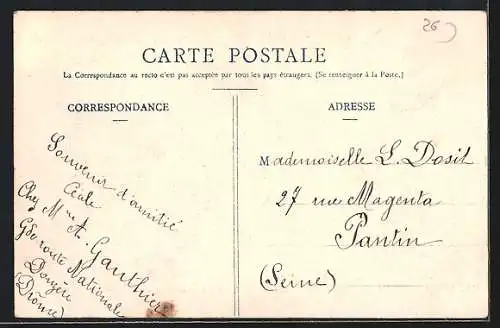 26
CARTE POSTALE
La Correspondance au recto n'est pas acceptée par tous les pays étrangers. (Se renseigner à la Poste.)
CORRESPONDANCE
Souvenir d'amitié
Chez Mme A. Gauthier
Gde route Nationale
Donzère
(Drôme)
ADRESSE
Mademoiselle L. Dosit
27 rue Magenta
Pantin
(Seine)